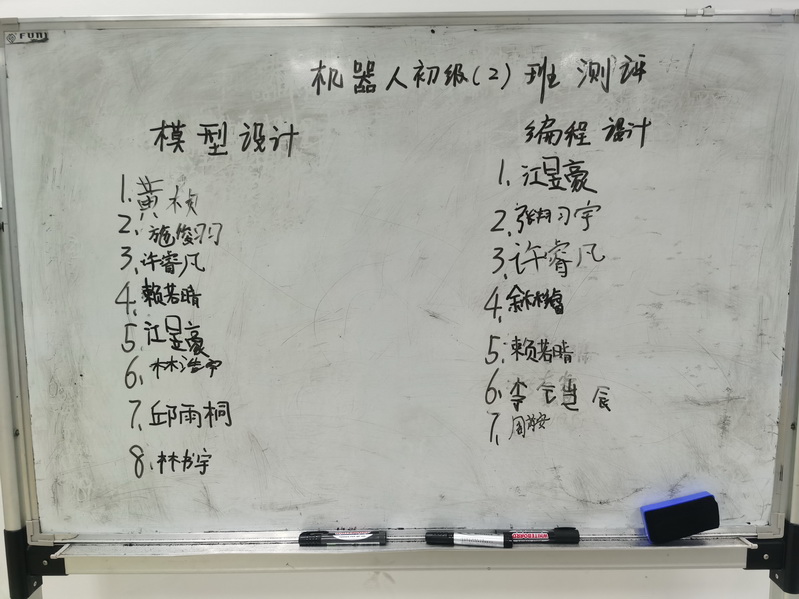 FUNI
机器人初级(2)班 测评
模型设计
1. 黄桢
2. 施俊羽
3. 许睿凡
4. 赖若晴
5. 江昱豪
6. 林浩宇
7. 邱雨桐
8. 林书宇
编程设计
1. 江昱豪
2. 张翔宇
3. 许睿凡
4. 余林睿
5. 赖若晴
6. 李 辰
7. 周 安